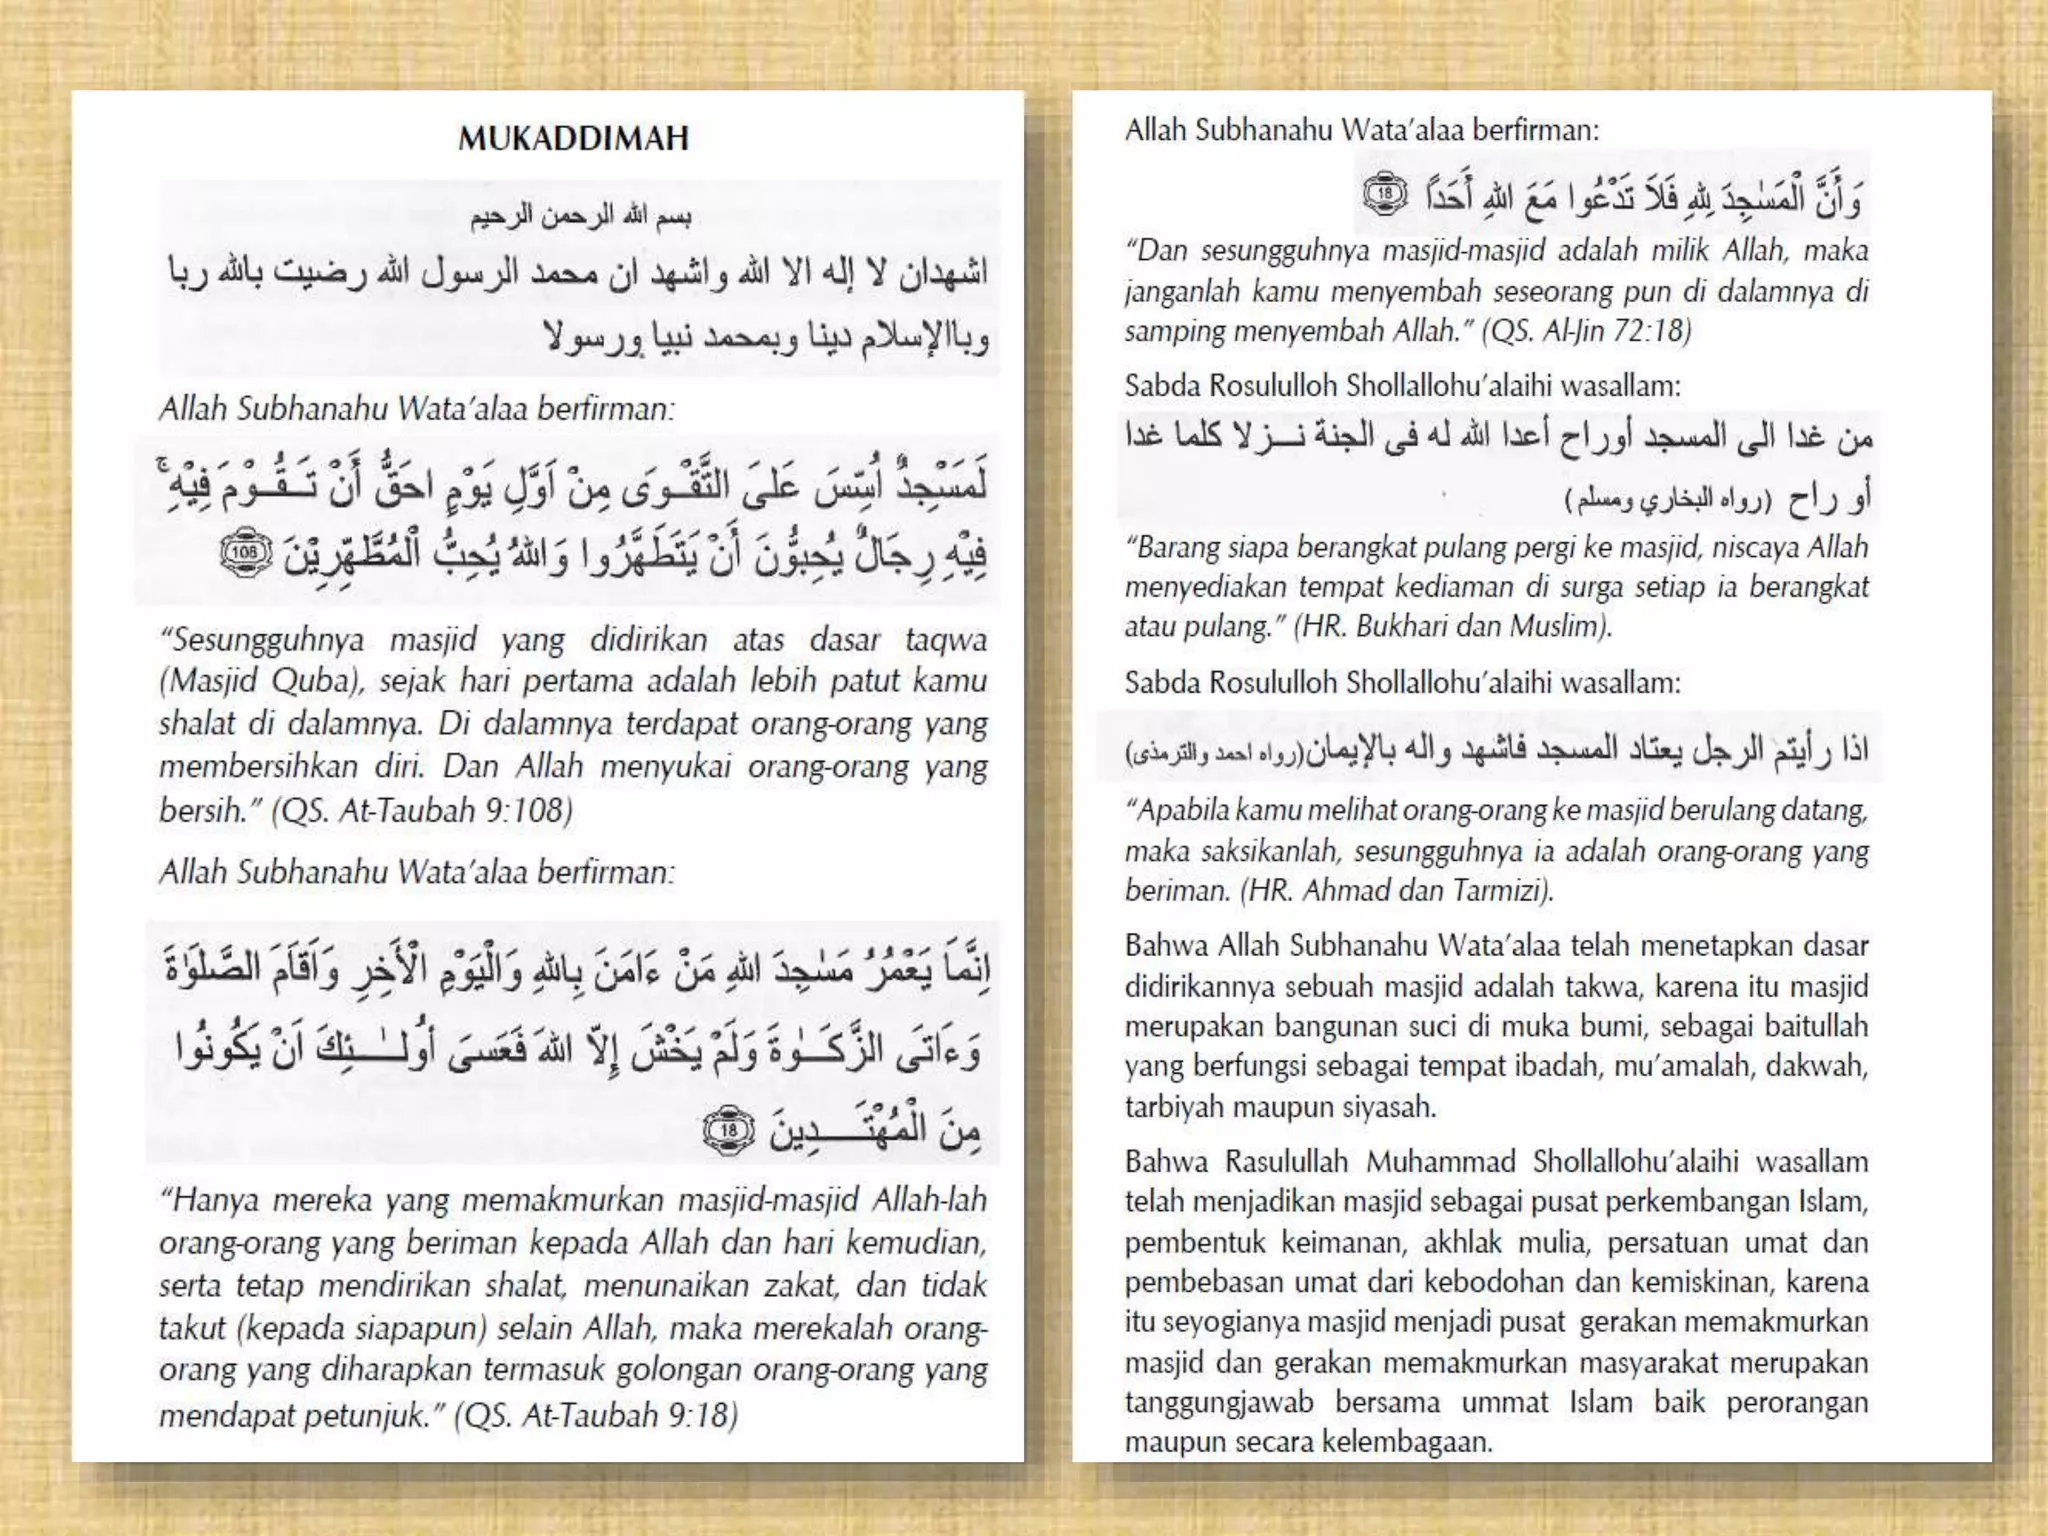 MUKADDIMAH
بسم الله الرحمن الرحيم
اشهدان لا إله الا الله واشهد ان محمد الرسول الله رضيت بالله ربا
وباالإسلام دينا وبمحمد نبيا ورسولا
Allah Subhanahu Wata’alaa berfirman:
لَمَسْجِدٌ اُسِّسَ عَلَى التَّقْوَى مِنْ اَوَّلِ يَوْمٍ احَقُّ أَنْ تَقُوْمَ فِيْهِ ۚ
فِيْهِ رِجَالٌ يُحِبُّونَ أَنْ يَتَطَهَّرُوا وَاللهُ يُحِبُّ الْمُطَّهِّرِيْنَ 108
“Sesungguhnya masjid yang didirikan atas dasar taqwa
(Masjid Quba), sejak hari pertama adalah lebih patut kamu
shalat di dalamnya. Di dalamnya terdapat orang-orang yang
membersihkan diri. Dan Allah menyukai orang-orang yang
bersih.” (QS. At-Taubah 9:108)
Allah Subhanahu Wata’alaa berfirman:
اِنَّمَا يَعْمُرُ مَسٰجِدَ اللهِ مَنْ ءَامَنَ بِاللهِ وَالْيَوْمِ الْأَخِرِ وَاَقَامَ الصَّلَوٰةَ
وَءَاتَى الزَّكَوٰةَ وَلَمْ يَخْشَ إِلاَّ اللهَ فَعَسَى أُولٰئِكَ اَنْ يَكُونُوا
مِنَ الْمُهْتَدِينَ 18
“Hanya mereka yang memakmurkan masjid-masjid Allah-lah
orang-orang yang beriman kepada Allah dan hari kemudian,
serta tetap mendirikan shalat, menunaikan zakat, dan tidak
takut (kepada siapapun) selain Allah, maka merekalah orang-
orang yang diharapkan termasuk golongan orang-orang yang
mendapat petunjuk.” (QS. At-Taubah 9:18)
Allah Subhanahu Wata’alaa berfirman:
وَأَنَّ الْمَسٰجِدَ لِلهِ فَلاَ تَدْعُوا مَعَ اللهِ أَحَدًا 18
“Dan sesungguhnya masjid-masjid adalah milik Allah, maka
janganlah kamu menyembah seseorang pun di dalamnya di
samping menyembah Allah.” (QS. Al-Jin 72:18)
Sabda Rosululloh Shollallohu’alaihi wasallam:
من غدا الى المسجد أوراح أعدا الله له فى الجنة نزلا كلما غدا
أو راح (رواه البخاري ومسلم)
“Barang siapa berangkat pulang pergi ke masjid, niscaya Allah
menyediakan tempat kediaman di surga setiap ia berangkat
atau pulang.” (HR. Bukhari dan Muslim).
Sabda Rosululloh Shollallohu’alaihi wasallam:
اذا رأيتم الرجل يعتاد المسجد فاشهد واله بالإيمان(رواه احمد والترمذى)
“Apabila kamu melihat orang-orang ke masjid berulang datang,
maka saksikanlah, sesungguhnya ia adalah orang-orang yang
beriman. (HR. Ahmad dan Tarmizi).
Bahwa Allah Subhanahu Wata’alaa telah menetapkan dasar
didirikannya sebuah masjid adalah takwa, karena itu masjid
merupakan bangunan suci di muka bumi, sebagai baitullah
yang berfungsi sebagai tempat ibadah, mu’amalah, dakwah,
tarbiyah maupun siyasah.
Bahwa Rasulullah Muhammad Shollallohu’alaihi wasallam
telah menjadikan masjid sebagai pusat perkembangan Islam,
pembentuk keimanan, akhlak mulia, persatuan umat dan
pembebasan umat dari kebodohan dan kemiskinan, karena
itu seyogianya masjid menjadi pusat gerakan memakmurkan
masjid dan gerakan memakmurkan masyarakat merupakan
tanggungjawab bersama ummat Islam baik perorangan
maupun secara kelembagaan.